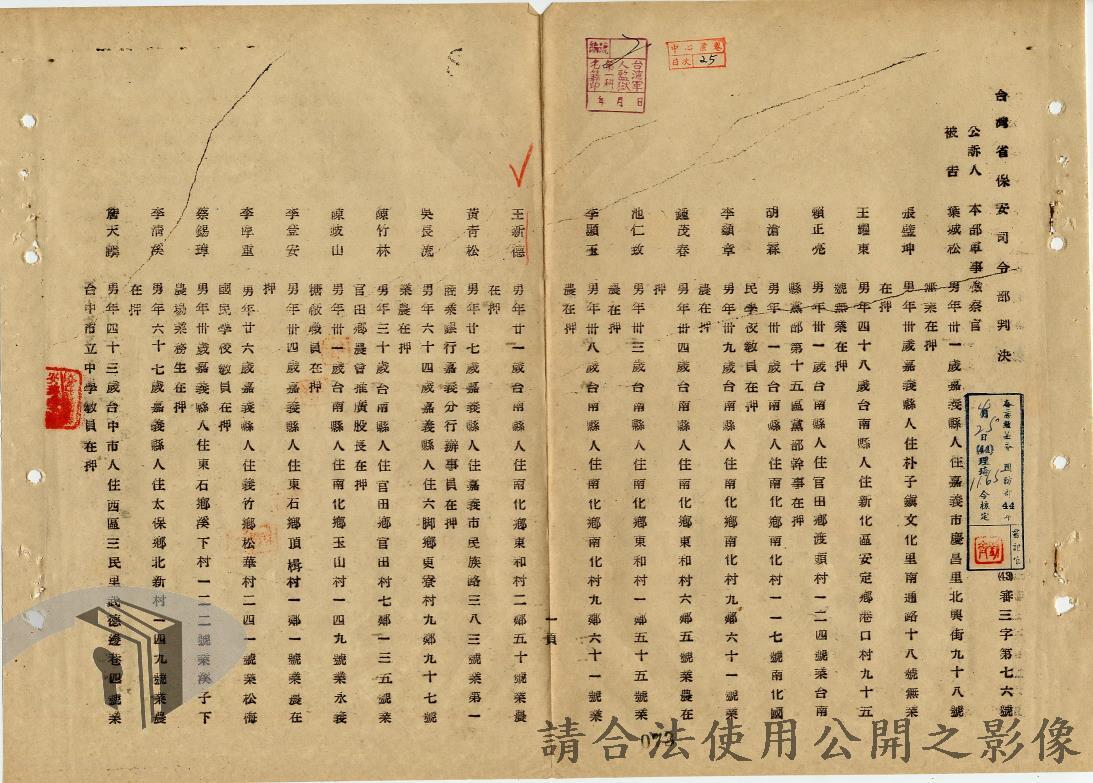 台灣省保安司令部判決
(43)審三字第七六號
公訴人 本部軍事檢察官
被告 葉城松 男年卅一歲嘉義縣人住嘉義市慶昌里北興街九十八號
無業在押
張璧坤 男年卅歲嘉義縣人住朴子鎮文化里南通路十八號無業
在押
王耀東 男年四十八歲台南縣人住新化區安定鄉港口村九十五
號無業在押
賴正亮 男年卅一歲台南縣人住官田鄉渡頭村一二四號業台南
縣黨部第十五區黨部幹事在押
胡滄霖 男年卅一歲台南縣人住南化鄉南化村一一七號南化國
民學校教員在押
李顯章 男年卅九歲台南縣人住南化鄉南化村九鄰六十一號業
農在押
鍾茂春 男年卅四歲台南縣人住南化鄉東和村六鄰五號業農在
押
池仁致 男年卅三歲台南縣人住南化鄉東和村一鄰五十五號業
農在押
李顯玉 男年卅八歲台南縣人住南化鄉南化村九鄰六十一號業
農在押
一頁
王新德 男年廿一歲台南縣人住南化鄉東和村二鄰五十號業農
在押
黃青松 男年廿七歲嘉義縣人住嘉義市民族路三八三號業第一
商業銀行嘉義分行辦事員在押
吳長流 男年六十四歲嘉義縣人住六脚鄉東寮村九鄰九十七號
業農在押
陳竹林 男年三十歲台南縣人住官田鄉官田村七鄰一三五號業
官田鄉農會推廣股長在押
陳岐山 男年卅一歲台南縣人住南化鄉玉山村一四九號業永義
教員在押
李登安 男年卅四歲嘉義縣人住東石鄉頂村一鄰一號業農在
押
李厚重 男年廿六歲嘉義縣人住義竹鄉松華村二四一號業松梅
國民學校教員在押
蔡錫璋 男年卅歲嘉義縣人住東石鄉溪下村一二二號業溪子下
農場業務生在押
李清溪 男年六十七歲嘉義縣人住太保鄉北新村一四九號業農
在押
詹天麟 男年四十三歲台中市人住西區三民里武德巷四號業
台中市立中學教員在押
中心索卷
目次 25
台灣軍
人監獄
第一科
年月日
073
請合法使用公開之影像